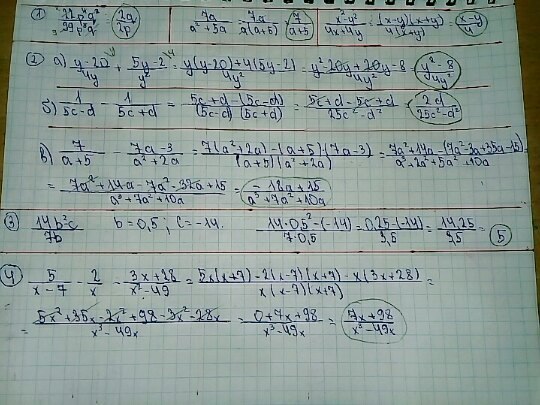 ① 22p⁴q² / 99p⁵q = 2q / 9p 7a / a²+5a = 7a / a(a+5) = 7 / a+5 x²-y² / 4x+4y = (x-y)(x+y) / 4(x+y) = x-y / 4
② а) y-20 / 4y + 5y-2 / y² = y(y-20)+4(5y-2) / 4y² = y²-20y+20y-8 / 4y² = y²-8 / 4y²
б) 1 / 5c-d - 1 / 5c+d = 5c+d-(5c-d) / (5c-d)(5c+d) = 5c+d-5c+d / 25c²-d² = 2d / 25c²-d²
в) 7 / a+5 - 7a-3 / a²+2a = 7(a²+2a)-(a+5)(7a-3) / (a+5)(a²+2a) = 7a²+14a-(7a²-3a+35a-15) / a³+2a²+5a²+10a
= 7a²+14a-7a²-32a+15 / a³+7a²+10a = -18a+15 / a³+7a²+10a
③ 14b²c / 7b b=0,5; c=-14. 14·0,5²·(-14) / 7·0,5 = 0,25·(-14) / 3,5 = 14,25 / 3,5 = 5
④ 5 / x-7 - 2 / x - 3x+28 / x²-49 = 5x(x+7)-2(x-7)(x+7)-x(3x+28) / x(x-7)(x+7) =
= 5x²+35x-2x²+98-3x²-28x / x³-49x = 0+7x+98 / x³-49x = 7x+98 / x³-49x